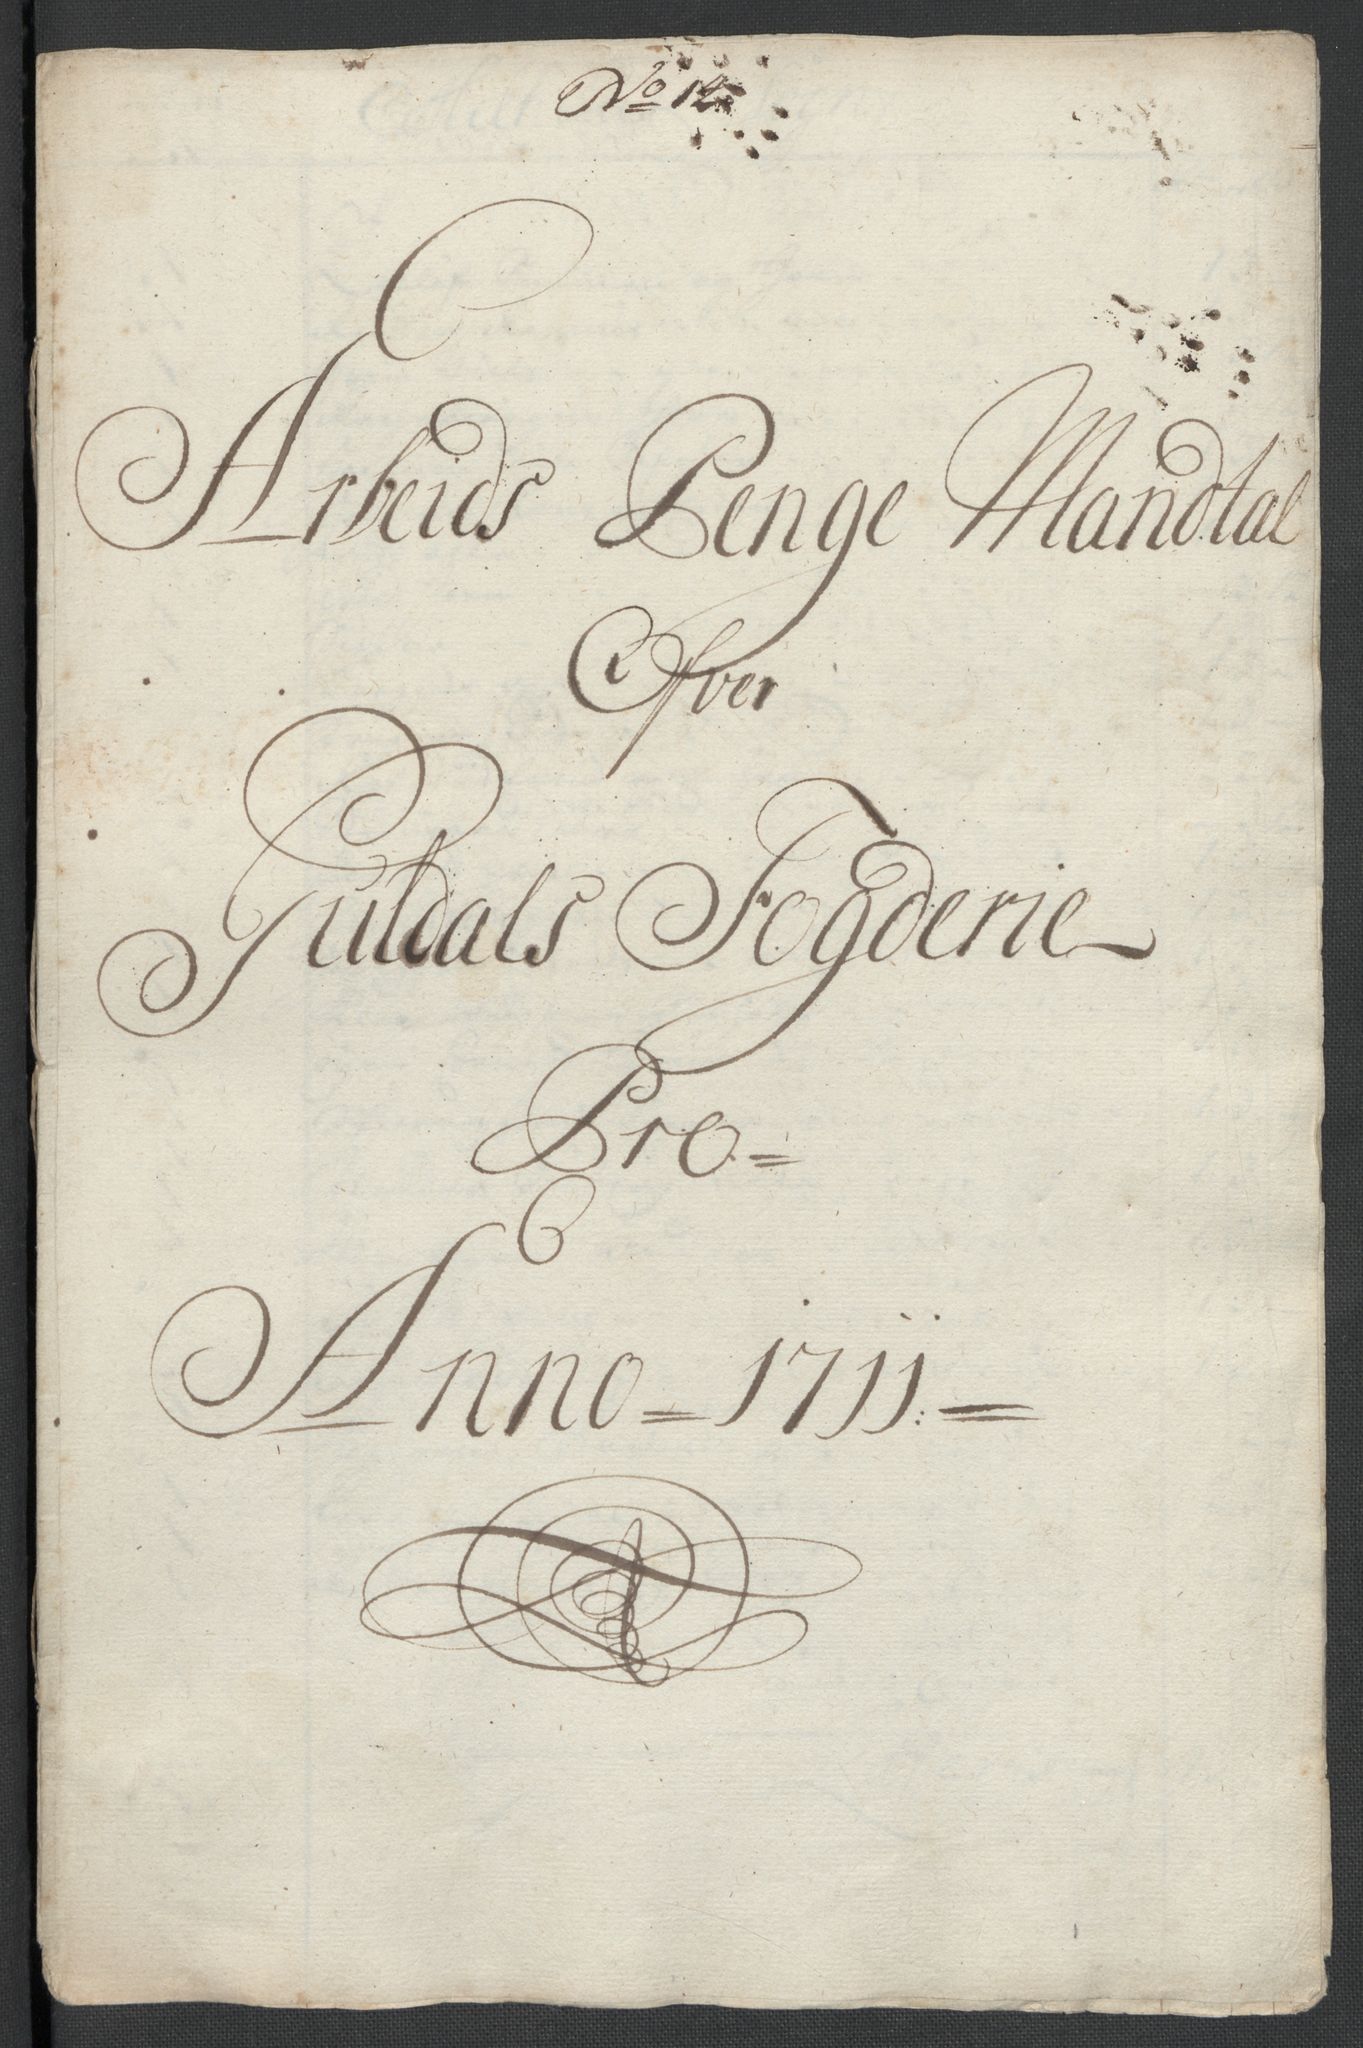 No 12
Arbeids Penge Mandtal
Ofver
Guldals Fogderie
Pro.=
Anno = 1711. =